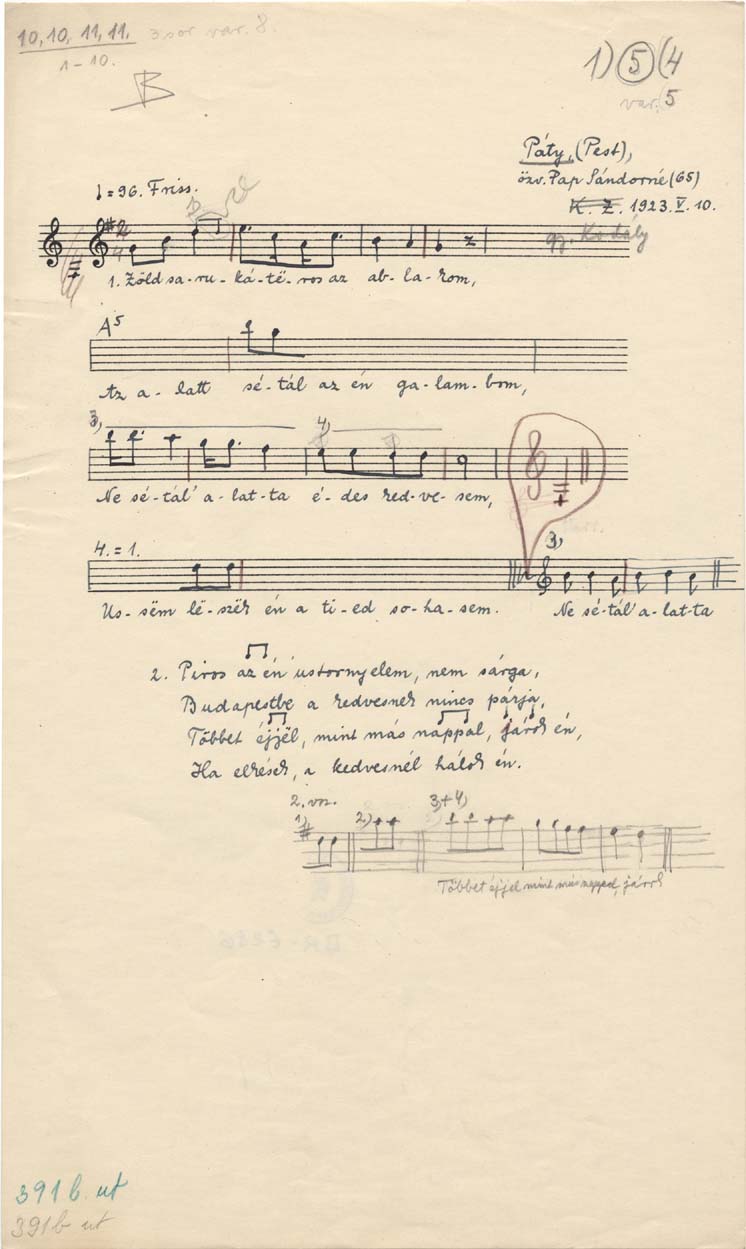 10, 10, 11, 11. 3 sor var. 8.
1-10.
B
1) 5 (4
var. 5
Páty, (Pest),
özv. Pap Sándorné (65)
K. Z. 1923. V. 10.
gy. Kodály
♩ = 96. Friss.
1. Zöld sa-ru-ká-té-ros az ab-la-kom,
A⁵
Az a-latt sé-tál az én ga-lam-bom,
3) 4)
Ne sé-tál' a-lat-ta é-des ked-ve-sem,
4. = 1. 3)
Us-sëm lë-szëk én a ti-ed so-ha-sem. Ne sé-tál' a-lat-ta
2. Piros az én ustornyelem, nem sárga,
Budapestbe a kedvesnek nincs párja,
Többet éjjël, mint más nappal, járok én,
Ha elkések, a kedvesnél hálok én.
2. vsz.
1) 2) 3)+4)
Többet éjjel mint más nappal, járok
391 b. ut
391 b ut